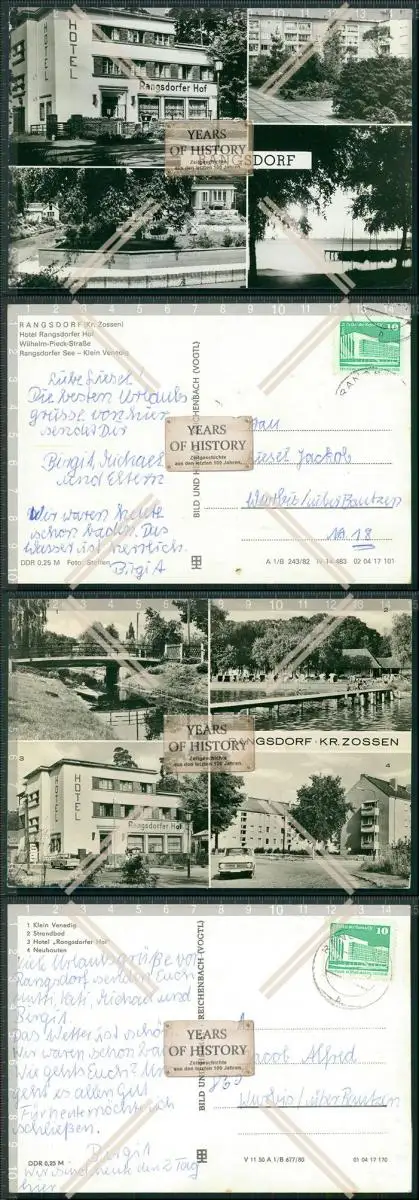 HOTEL
Rangsdorfer Hof
RANGSDORF
YEARS
OF HISTORY
Zeitgeschichte
aus den letzten 100 Jahren.
RANGSDORF (Kr. Zossen)
Hotel Rangsdorfer Hof
Wilhelm-Pieck-Straße
Rangsdorfer See – Klein Venedig
Liebe Liesel!
Die besten Urlaubs
grüsse von hier
sendet Dir
Birgit, Michael
und Eltern
Wir waren heute
schon baden. Das
Wasser ist herrlich.
Birgit
DDR 0,25 M Foto:
BILD UND REICHENBACH (VOGTL)
YEARS
OF HISTORY
Zeitgeschichte
aus den letzten 100 Jahren.
10
Frau
Liesel Jackob
Wurbis/über Bautzen
NA 18
A 1/B 243/82 IV 14 483 02 04 17 101
YEARS
OF HISTORY
Zeitgeschichte
aus den letzten 100 Jahren.
RANGSDORF · KR. ZOSSEN
3
4
HOTEL
HOTEL
Rangsdorfer Hof
1 Klein Venedig
2 Strandbad
3 Hotel „Rangsdorfer Hof"
4 Neubauten
Urlaubsgrüße von
Rangsdorf senden Euch
Mutti, Vati, Michael und
Birgit.
Das Wetter ist schön
Wir waren schon
Wie gehts Euch?
geht es allen gut
Für heute möchte ich
schließen.
Birgit
Wir sind heute den 2 Tag
hier
DDR 0,25 M
BILD UND REICHENBACH (VOGTL)
YEARS
OF HISTORY
Zeitgeschichte
aus den letzten 100 Jahren.
10
Jacob Alfred
Wurbis/über Bautzen
V 11 50 A 1/B 677/80 01 04 17 170